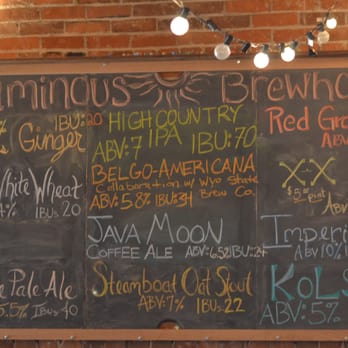 minous Brewho
% IBU:20
s Ginger
White Wheat
4% IBUs 20
e Pale Ale
5.5% IBUs: 40
HIGH COUNTRY
IPA
ABV:7 IBU:70
BELGO-AMERICANA
Collaboration w/ Wyo State
ABV: 5.8% IBU:34 Brew Co.
JAVA MOON
COFFEE ALE ABV:6.52 IBU:24
Steamboat Oat Stout
ABV:7% IBUs:22
Red Gra
ABV
$5.00 pint
ABV
Imperi
ABV 10%
KOLS
ABV: 5%